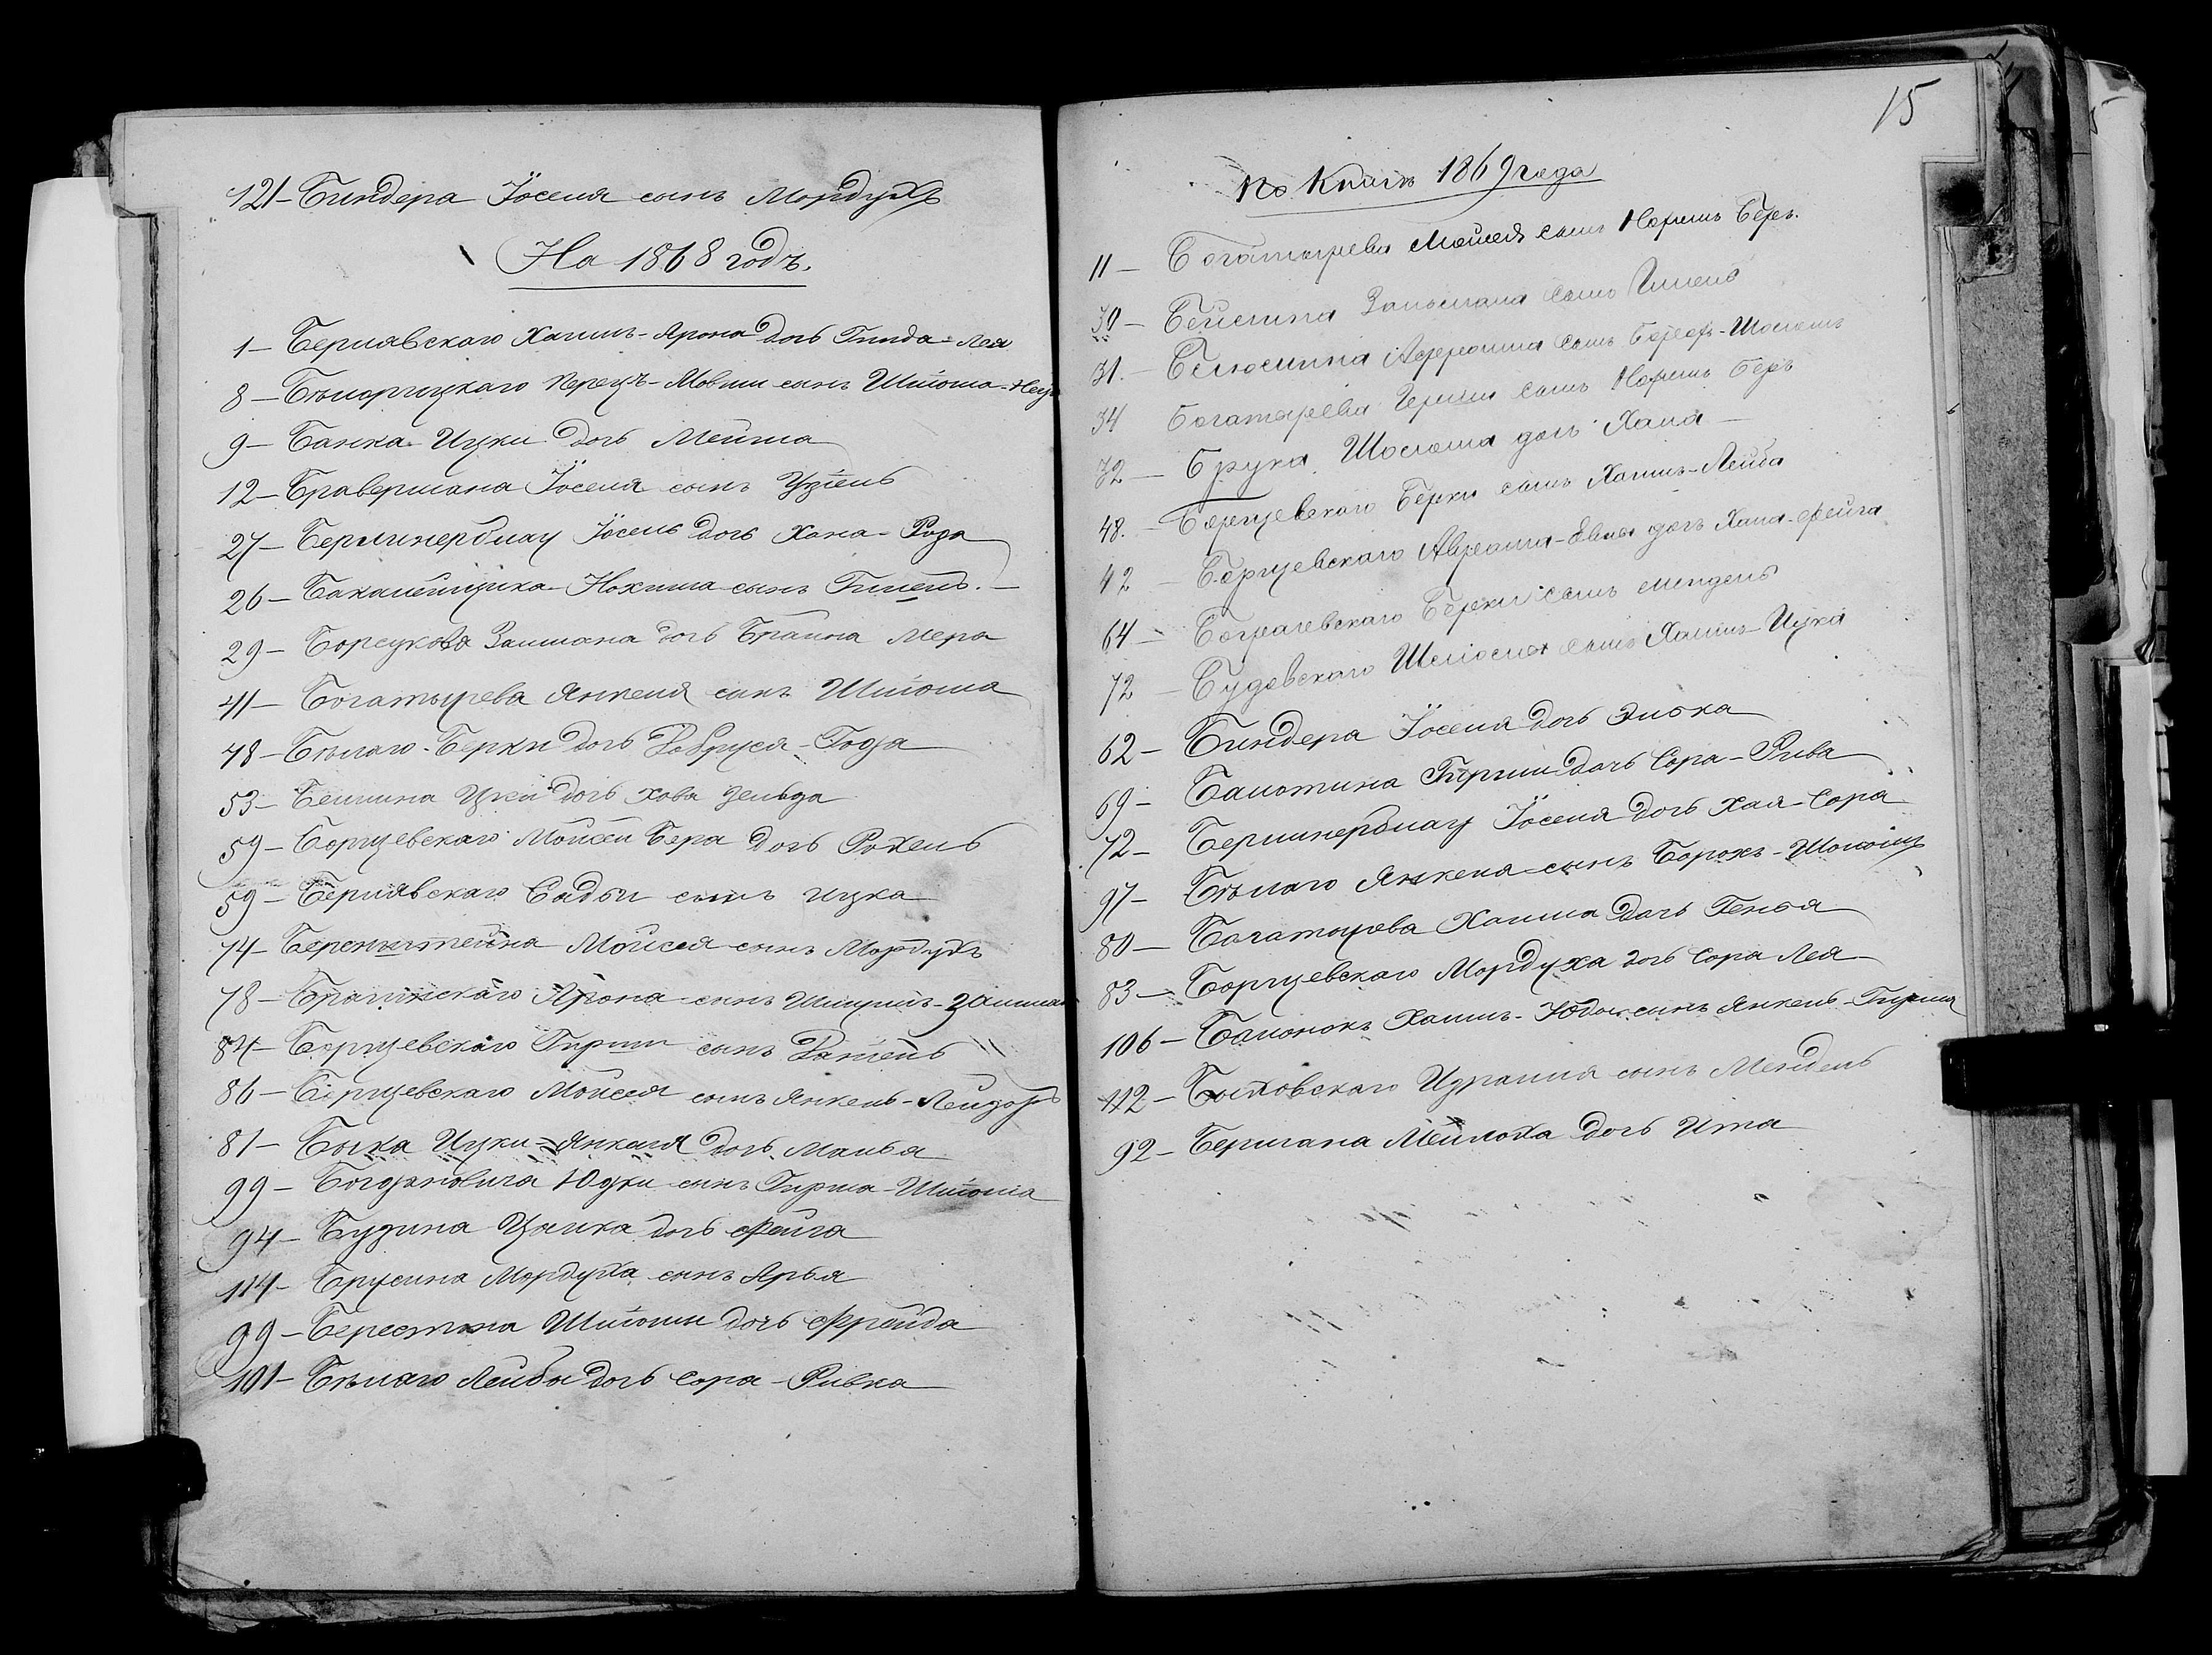 121 – Биндера Іоселя сынъ Мордухъ
На 1868 годъ.
1 – Бернавскаго Хаимъ-Арона дочь Гинда-Лея
8 – Бѣло Перецъ-Мовши сынъ Шліома-
9 – Банка Ицки дочь Мейта
12 – Бравермана Іоселя сынъ Узіель
27 – Берлинерблау Іосель дочь Хана-Рода
26 – Нохима сынъ
29 – Борсукова Залмана дочь Браина Мера
41 – Богатырева Янкеля сынъ Шліома
48 – Бѣлаго Берки дочь Добруся-Года
53 – Бейлина Ицки дочь Хова Зельда
59 – Борщевскаго Мойсей Бера дочь Рохель
59 – Бернявскаго сынъ Ицка
74 – Беренштейна Мойсея сынъ Мордухъ
78 – Брагинскаго Арона сынъ
84 – Борщевскаго Гирши сынъ
86 – Борщевскаго Мойсея сынъ Янкель-
81 – Быка Ицки-Янкеля дочь Малья
99 – Богдановича Юдки сынъ Гирша-Шліома
94 – Будина дочь Фейга
114 – Брусина Мордуха сынъ Арья
99 – Берестина Шліомы дочь Фрейда
101 – Бѣлаго Лейбы дочь Сора-Ривка
15
По книгѣ 1869 года
11 – Богатырева Мойсея сынъ Берь.
30 – Бейлина Зальмана сынъ
31. – Аврама сынъ -Шоломъ
34 Богатырева Герши сынъ Беръ
32 – Брука Шолома дочь Хана –
48. – Борщевскаго Берки сынъ Хаимъ-Лейба
42 – Борщевскаго Авраама- дочь Хана-Фейга
64 – Берки сынъ Мендель
72 – Будовскаго сынъ Хаимъ-Ицка
62 – Биндера Іоселя дочь Элька
69 – Болотина Гирши дочь Сора-Рива
72 – Берлинерблау Іоселя дочь Хая-Сора
97 – Бѣлаго Янкеля сынъ Борохъ-Шоломъ
80 – Богатырева Хаима дочь Генся
83 – Борщевскаго Мордуха дочь Сора Лея
106 – Хаимъ-Юды сынъ Янкель-Гирша
112 – Быховскаго Израиля сынъ Мендель
92 – Бермана Мейлоха дочь Ита